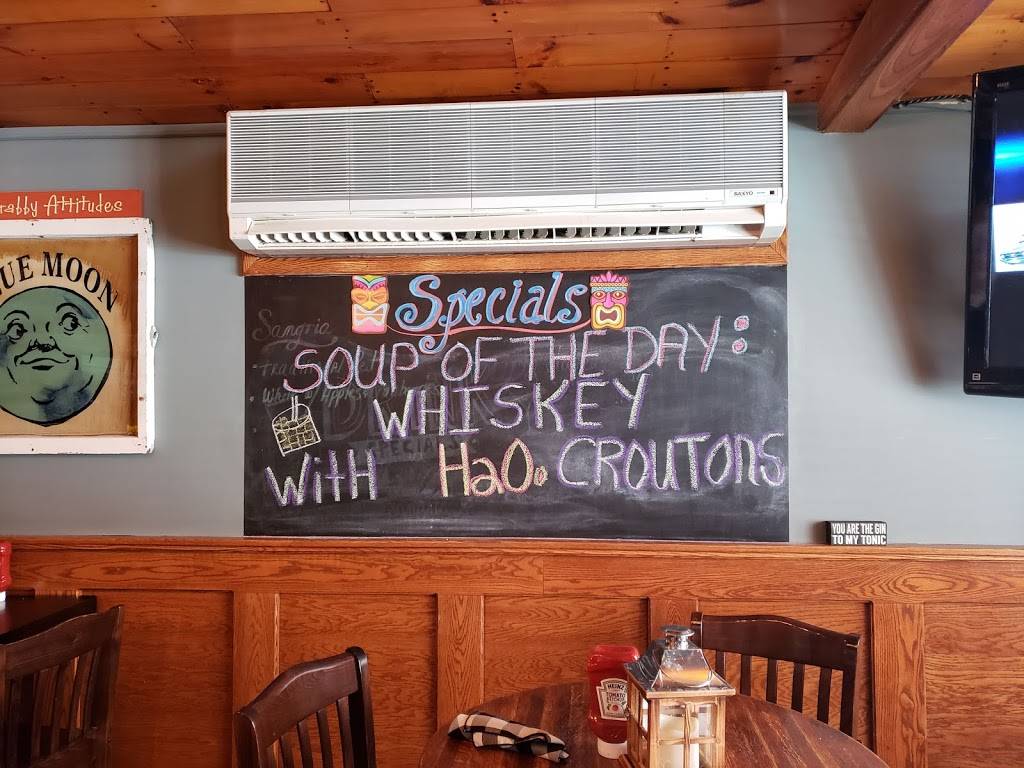 SANYO
rabby Attitudes
UE MOON
Specials
Sangria
SOUP OF THE DAY:
WHISKEY
SPECIALS
With HaO. CROUTONS
YOU ARE THE GIN
TO MY TONIC
HEINZ
TOMATO
KETCHUP